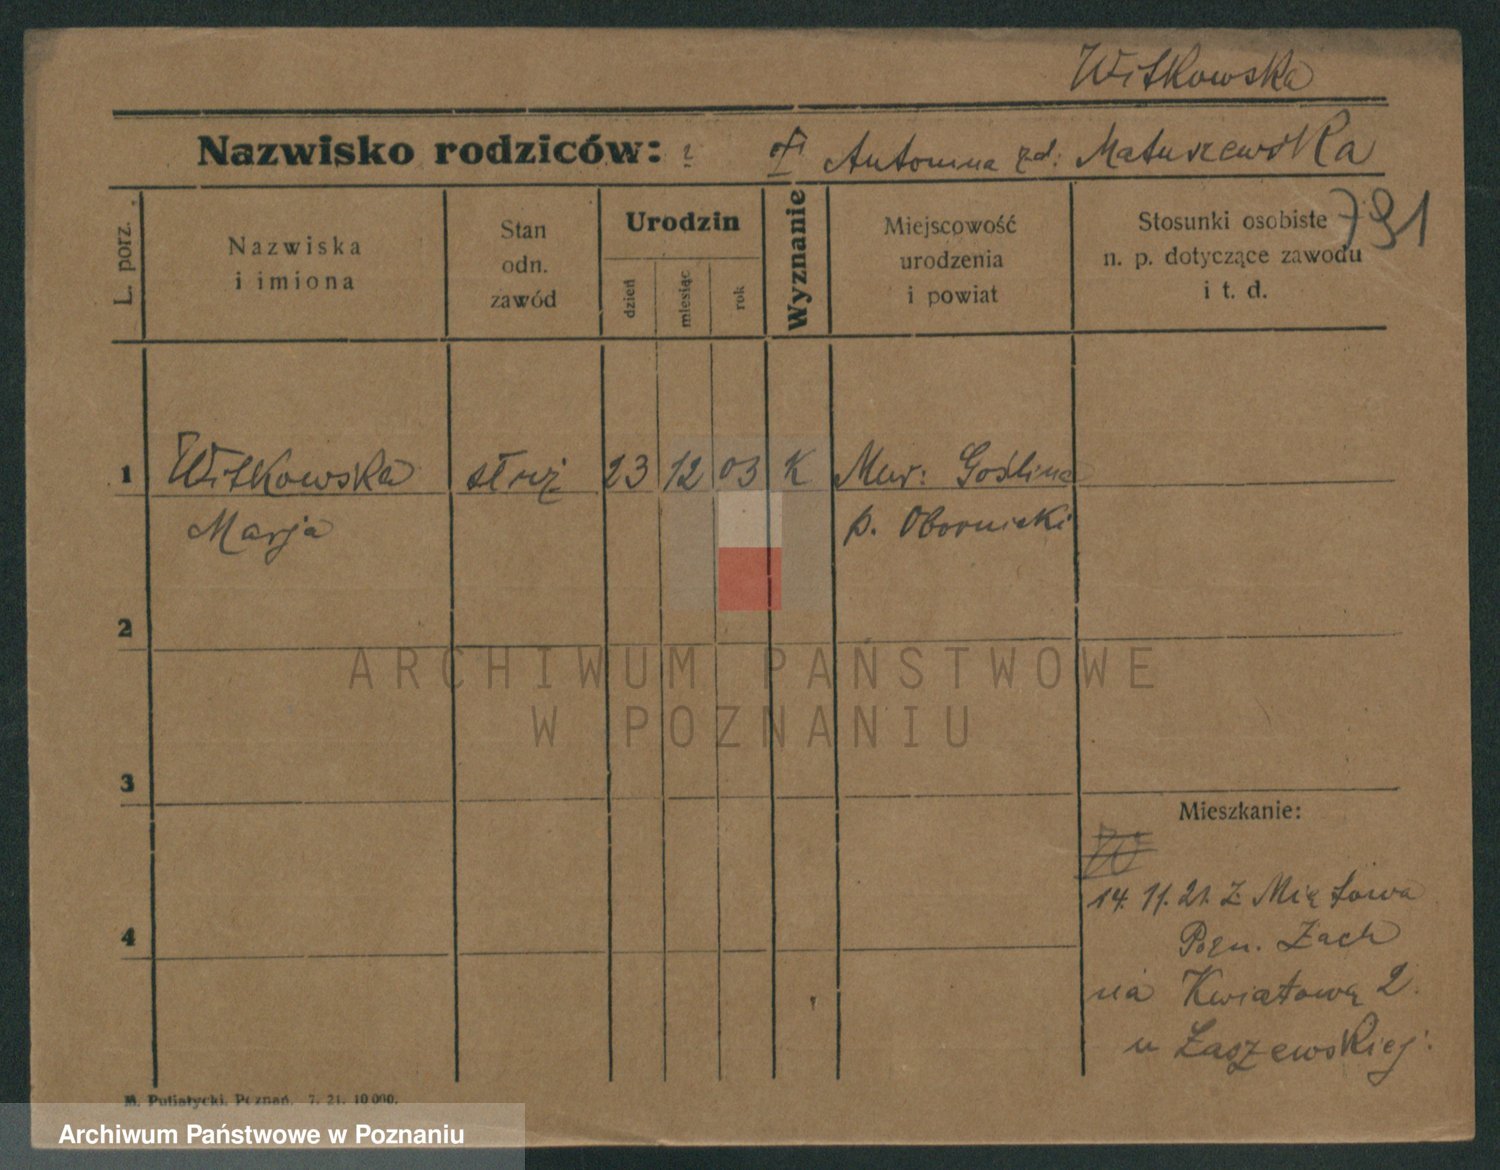 Witkowska
Nazwisko rodziców: ? Antonina zd. Matuszewska
791
L. porz.
Nazwiska i imiona
Stan odn. zawód
Urodzin
dzień
miesiąc
rok
Wyznanie
Miejscowość urodzenia i powiat
Stosunki osobiste n. p. dotyczące zawodu i t. d.
1 Witkowska służ 23 12 03 K Mur: Goślina
Marja p. Obornicki
2
ARCHIWUM PAŃSTWOWE
W POZNANIU
3
Mieszkanie:
14. 11. 21. z Miętowa
4
Pozn. Zach
na Kwiatową 2.
u Łaszewskiej.
M. Putiatycki, Poznań. 7. 21. 10 000.
Archiwum Państwowe w Poznaniu